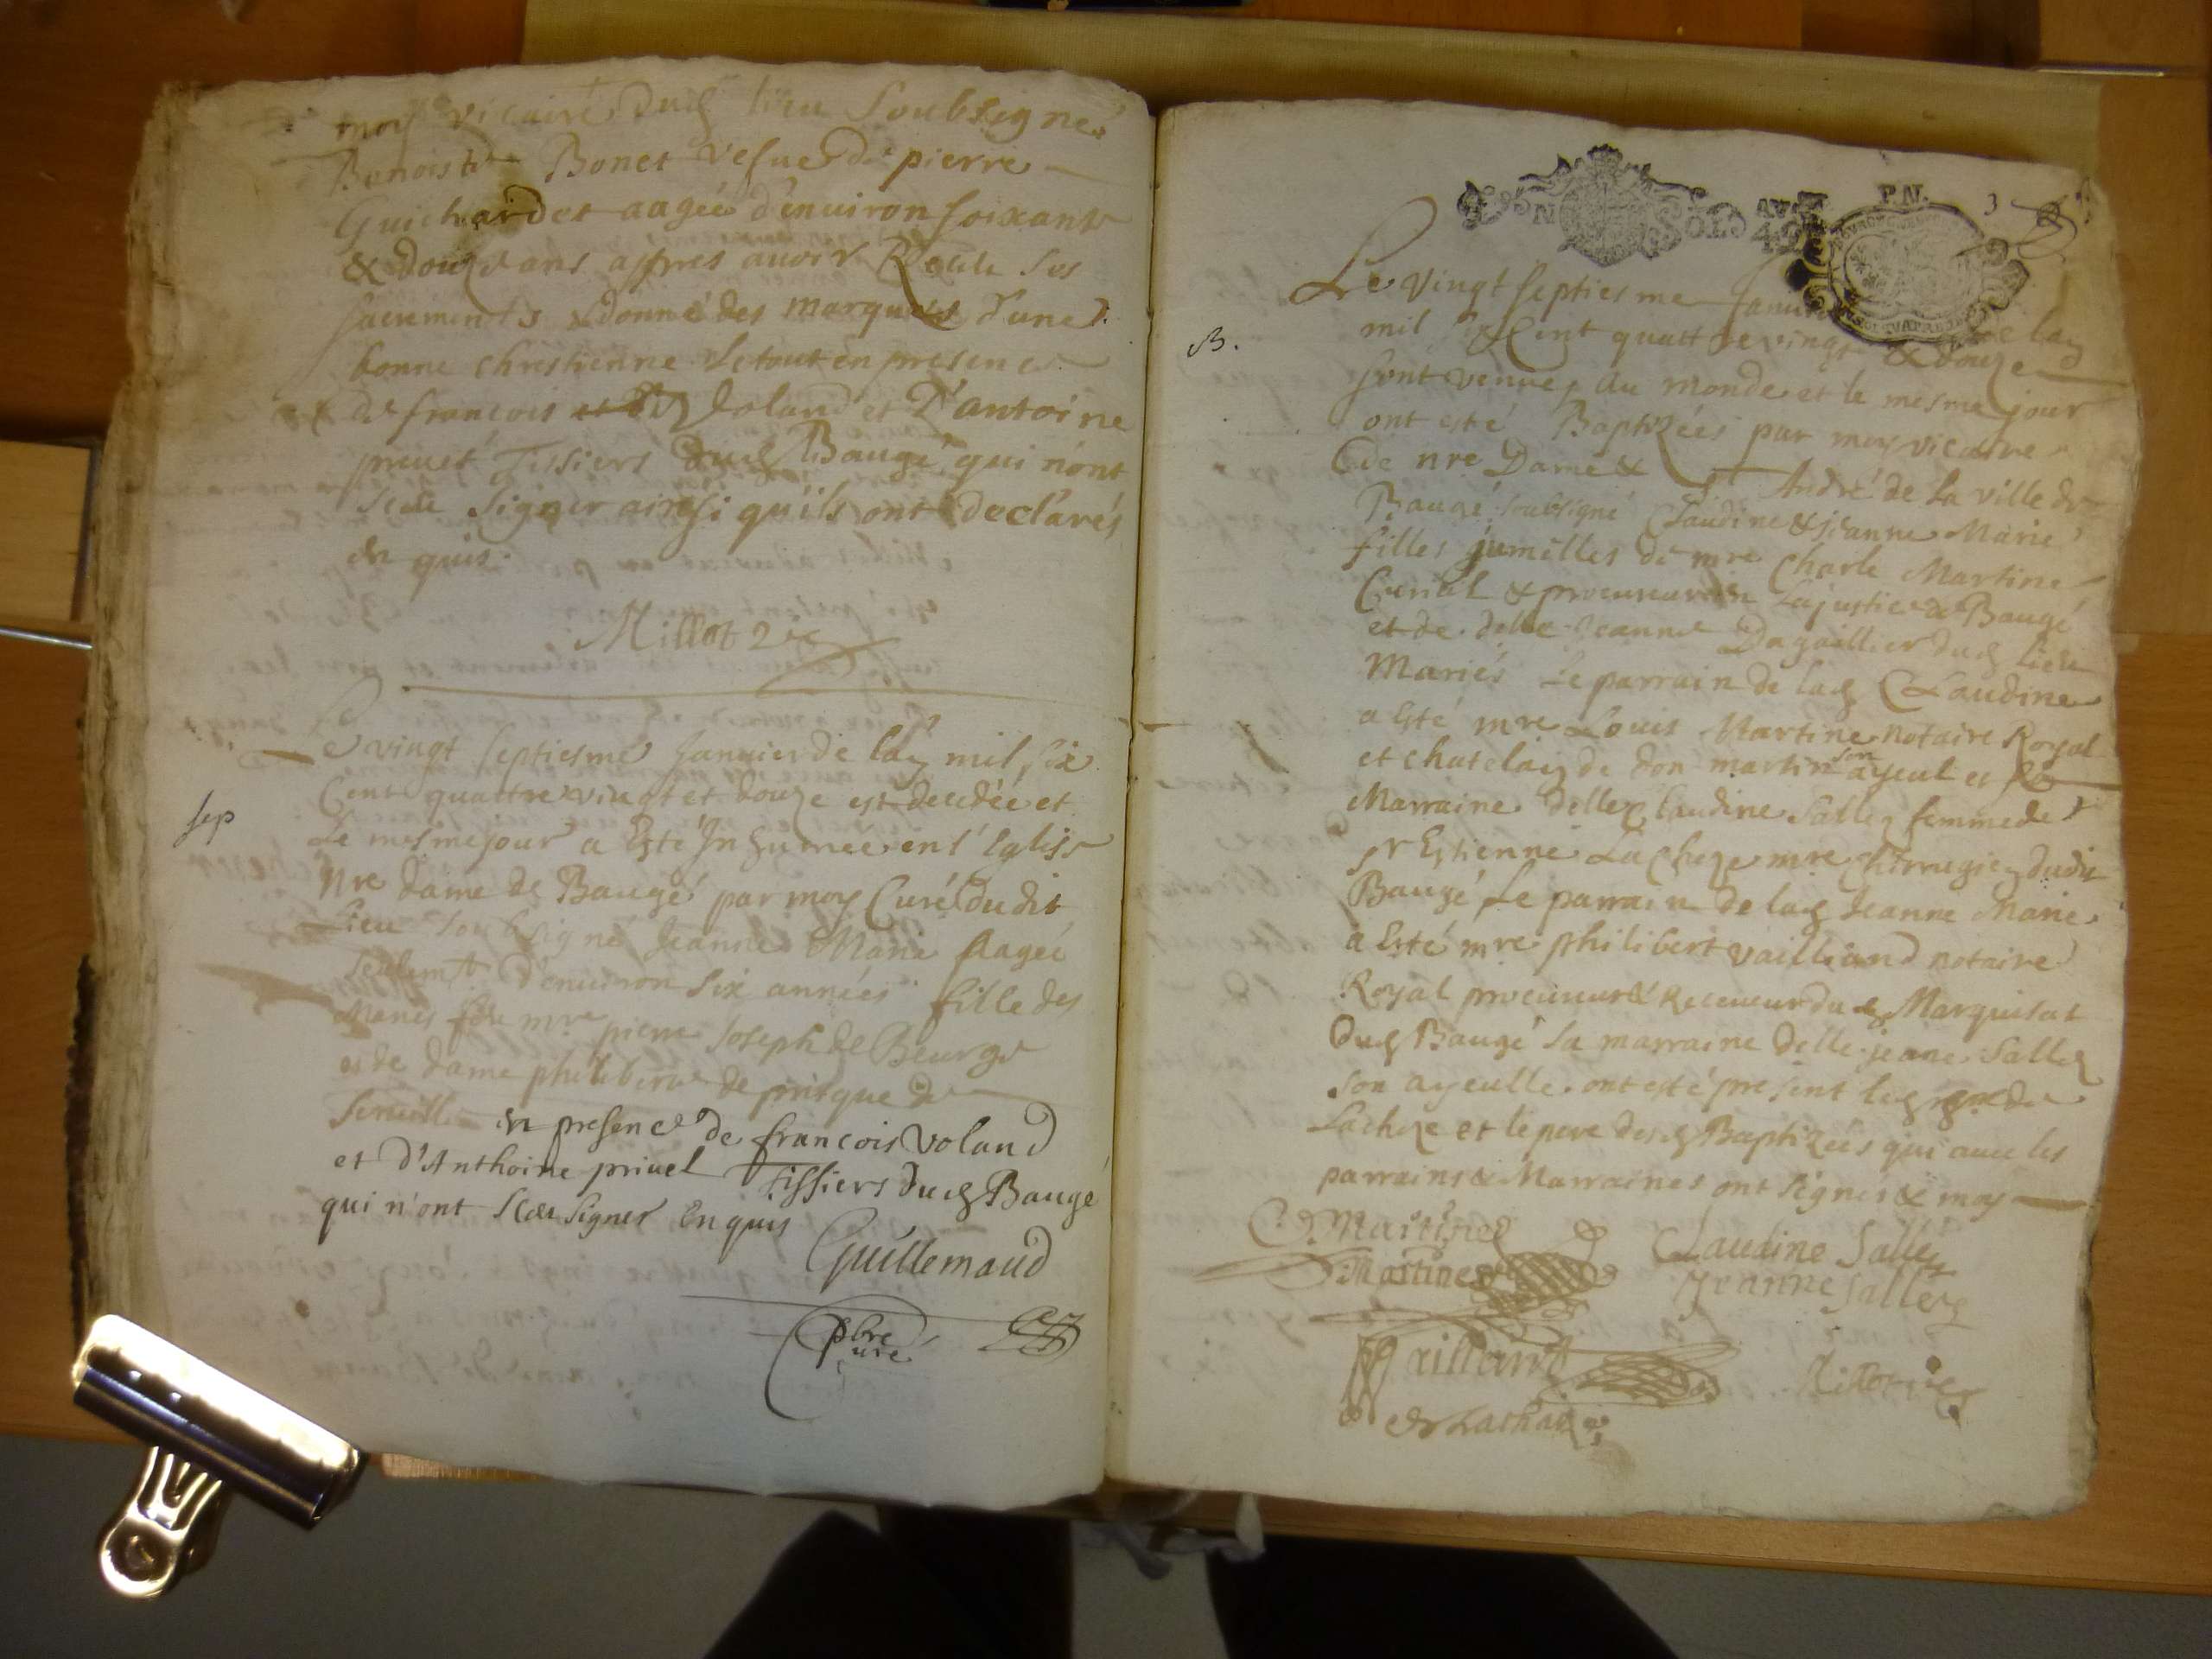 moy vicaire dud lieu Soubsigne
Benoiste Bonet vefue de pierre
Guichardet aagée d'enuiron soixante
& douze ans apres auoir Receu ses
sacrements & donné des marques d'une
bonne chrestienne le tout en presence
de francois Voland et D'antoine
priuet Tissiers dud Baugé qui n'ont
sceu signer ainsi qu'ils ont declarés
en quis.
Millot vic
Le vingt septiesme Januier de lan mil six
Cent quattre vingt et douze est decedée et
Le mesme jour a Esté Inhumée en l'Eglise
Nre dame de Baugé par moy Curé dudit
Lieu soubsigné Jeanne Marie aagée
seulemt d'enuiron six années fille des
Mariés feu mre pierre Joseph de Beurge
et de dame philiberte de
en presence de francois Voland
et d'Anthoine priuel tissiers dud Baugé
qui n'ont sceu signer Enquis
Guillemaud
pbre
curé
sep
P.N. 3
B.
Le vingt septiesme Januier de lan
mil six Cent quattre vingt & douze
sont venues au monde et le mesme jour
ont esté Baptizées par moy vicaire
de nre Dame & St André de la ville de
Baugé soubsigné Claudine & jeanne Marie
filles jumelles de mre Charle Martine
Curial & procureur en la justice de Baugé
et de delle Jeanne Dagaillier dud lieu
Mariés Le parrain de lad Claudine
a Esté mre Louis Martine notaire Royal
et chatelain de don martin son ayeul et
Marraine delle Claudine Salley femme de
sr Estienne Lacheze mre chirurgien dudit
Baugé Le parrain de lad Jeanne Marie
a Esté mre philibert Vailliand notaire
Royal procureur & Receueur du Marquisat
Dud Baugé sa marraine delle jeane Salley
son ayeulle. ont esté present led sr de
Lacheze et le pere desd Baptizées qui auec les
parrains & Marraines ont signés & moy
C. Martine
Martine
Claudine Salley
Jeanne Salley
Vailland
Millot vic